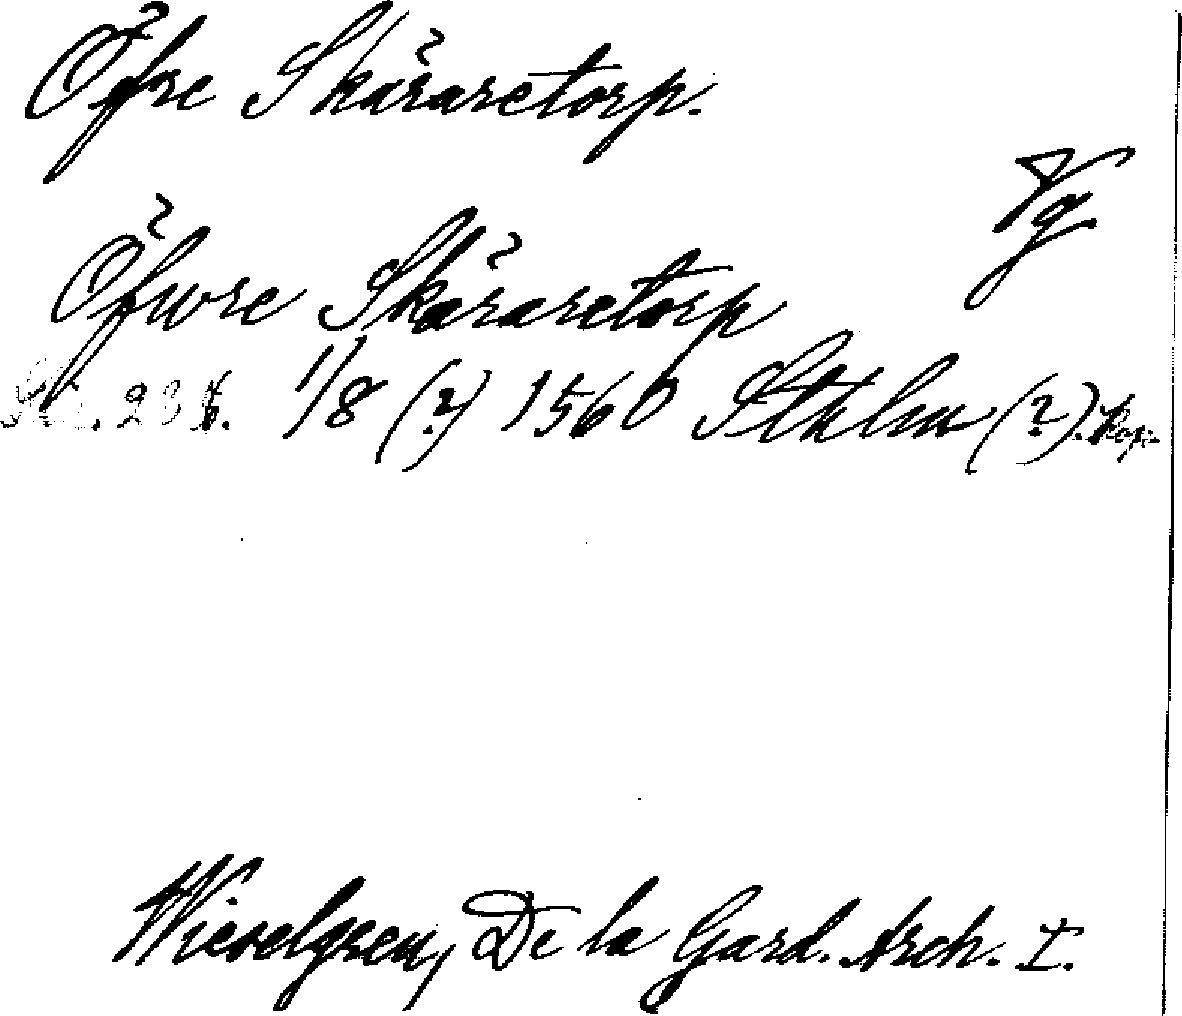 Öfre Skäraretorp.
Vg
Öfwre Skäraretorp
1/8 (?) 1560 Sthlm (?). Kop.
Wieselgren, De la Gard. Arch. I.